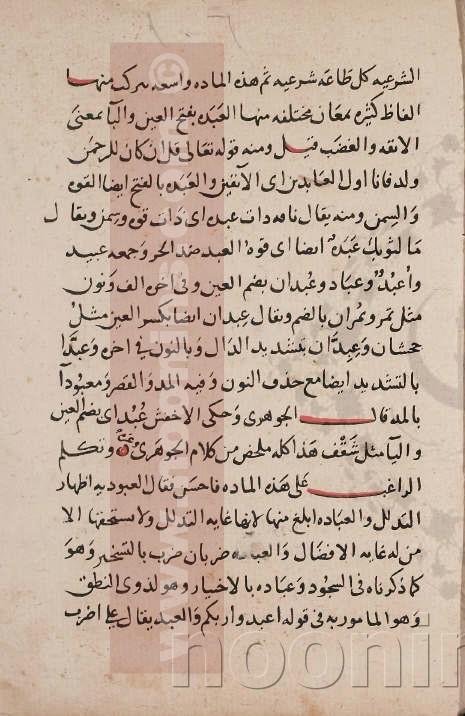 الشرعيه كل طاعه شرعيه ثم هذه الماده واسعه يتركب منها
الفاظ كثيره بمعان مختلفه منها العَبَده بفتح العين والبا بمعنى
الانفه والغضب قيل ومنه قوله تعالى قل ان كان للرحمن
ولد فانا اول العابدين اى الآنفين والعَبده بالفتح ايضا القوه
والسمن ومنه يقال ناقه ذات عبده اى ذات قوه وسمن ويقال
ما لثوبك عَبَدَه ايضا اى قوه العبد ضد الحر وجمعه عبيد
واعبُد وعباد وعُبدان بضم العين وفى اخره الف ونون
مثل تمر وتمران بالضم ويقال عِبدان ايضا بكسر العين مثل
جحشان وعِبِدّان بتشديد الدال وبالنون فى اخره وعبدّا
بالتشديد ايضا مع حذف النون وفيه المد والقصر ومعبودآ
بالمد قال الجوهرى وحكى الاخفش عُبُد اى بضم العين
والبا مثل سَقْف هذا كله ملخص من كلام الجوهرى وتكلم
الراغب على هذه الماده فاحسن فقال العبوديه اظهار
التذلل والعباده ابلغ منها لانها غايه التذلل ولا يستحقها الا
من له غايه الافضال والعباده ضربان ضرب بالتسخير وهو
كما ذكرناه فى السجود وعباده بالاختيار وهو لذوى النطق
وهو المامور به فى قوله اعبدوا ربكم والعبد يقال على اضرب
www.
noonin